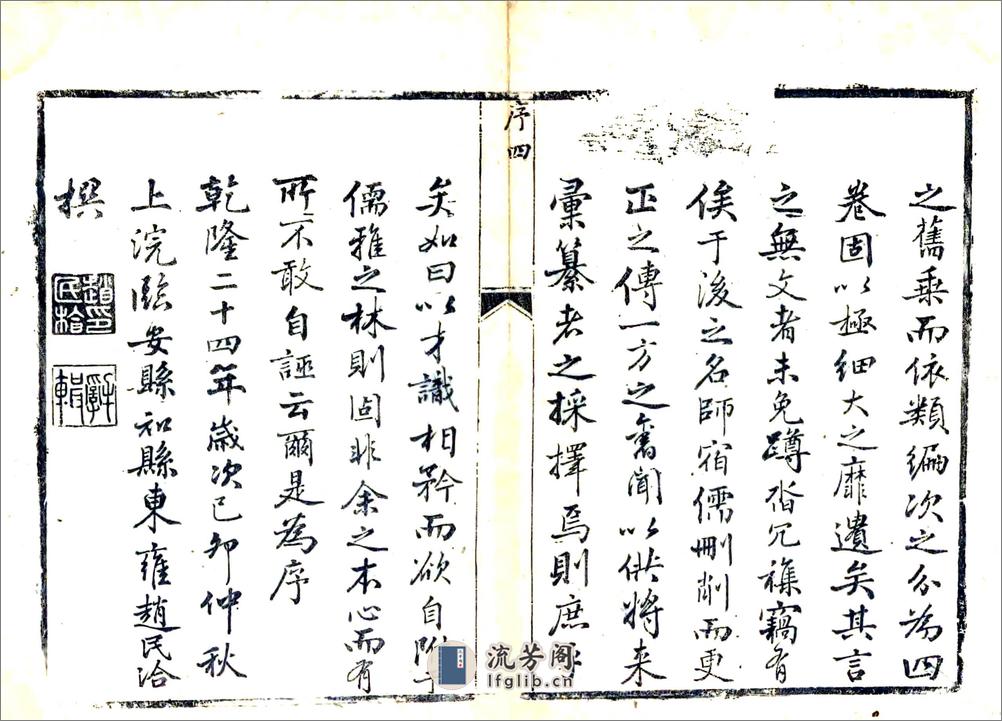 之舊乗而依類編次之分為四
卷固以極細大之靡遺矣其言
之無文者未免蹲沓冗襍竊有
俟于後之名師宿儒刪削而更
正之傳一方之舊聞以供將来
彙纂者之採擇焉則庶乎
序四
矣如曰以才識相矜而欲自附于
儒雅之林則固非余之本心而有
所不敢自誣云爾是為序
乾隆二十四年歲次己卯仲秋
上浣臨安縣知縣東雍趙民洽
撰
趙民洽印
流芳阁
lfglib.cn